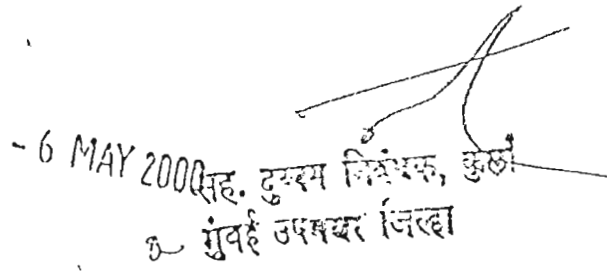 - 6 MAY 2000 सह. दुय्यम निबंधक, कुर्ला
मुंबई उपनगर जिल्हा